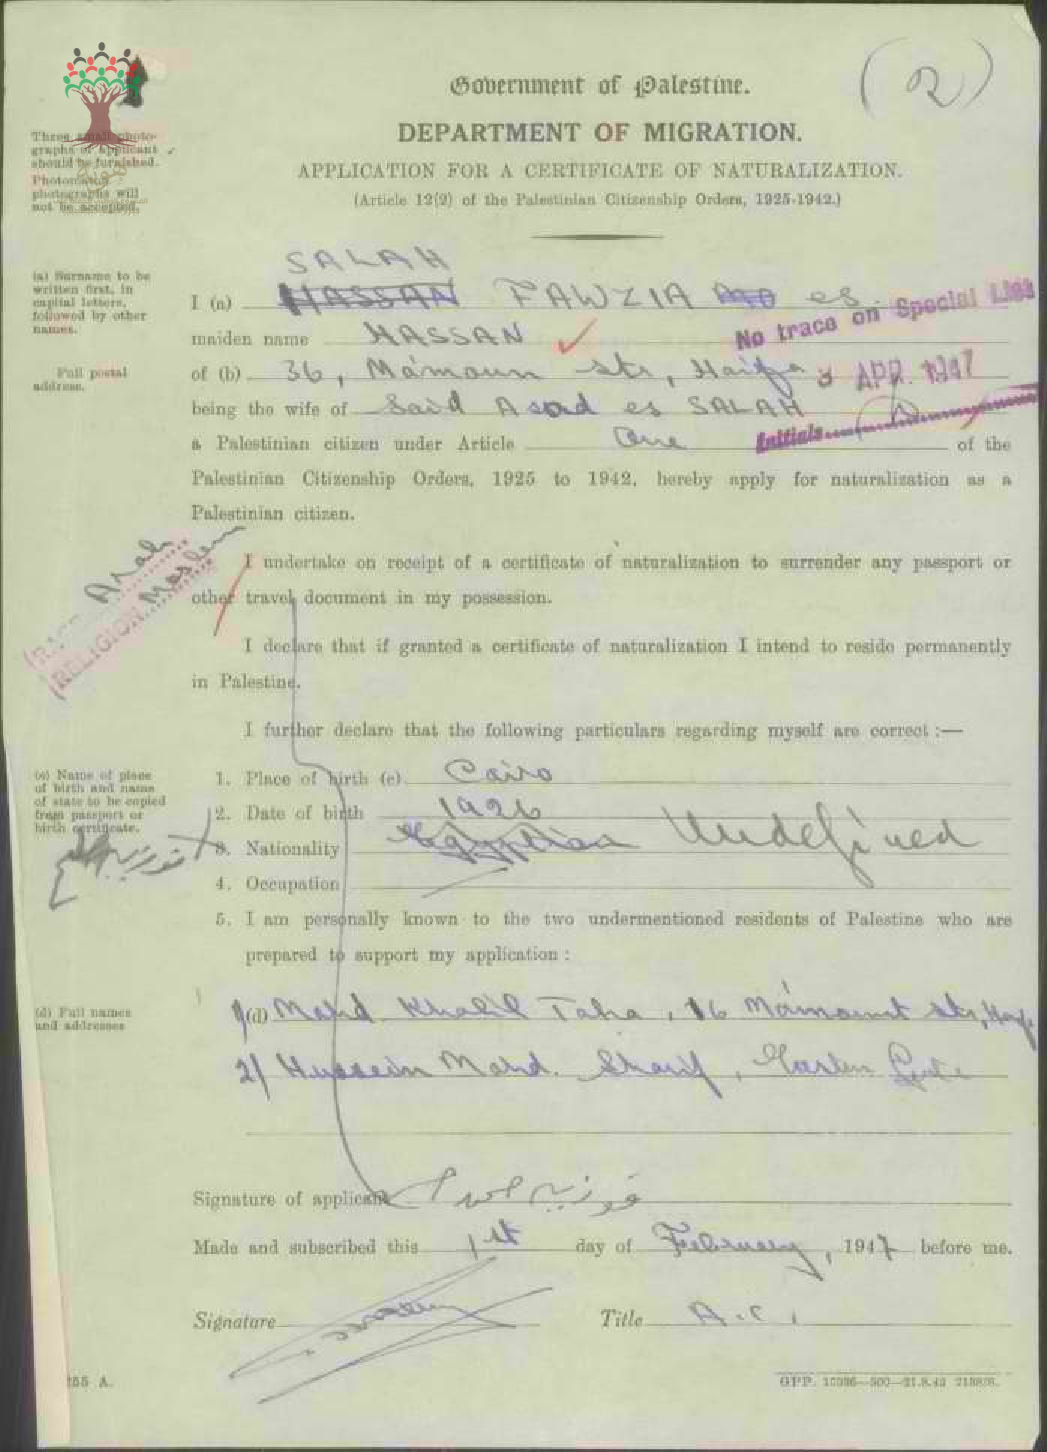 (2)
Government of Palestine.
DEPARTMENT OF MIGRATION.
APPLICATION FOR A CERTIFICATE OF NATURALIZATION.
(Article 12(2) of the Palestinian Citizenship Orders, 1925-1942.)
Three small photo-
graphs of applicant
should be furnished.
photographs will
not be accepted.
(a) Surname to be
written first, in
capital letters,
followed by other
names.
SALAH
I (a) HASSAN FAWZIA es
No trace on Special List
maiden name HASSAN
Full postal
address.
of (b) 36, Mámoun str, Haifa
3 APR. 1947
being the wife of Said Asad es SALAH
Initials
a Palestinian citizen under Article One of the
Palestinian Citizenship Orders, 1925 to 1942, hereby apply for naturalization as a
Palestinian citizen.
RACE Arab
RELIGION Moslem
I undertake on receipt of a certificate of naturalization to surrender any passport or
other travel document in my possession.
I declare that if granted a certificate of naturalization I intend to reside permanently
in Palestine.
I further declare that the following particulars regarding myself are correct :—
(c) Name of place
of birth and name
of state to be copied
from passport or
birth certificate.
1. Place of birth (c) Cairo
2. Date of birth 1926
3. Nationality Egyptian Undefined
4. Occupation
5. I am personally known to the two undermentioned residents of Palestine who are
prepared to support my application :
(d) Full names
and addresses
1/(d) Mahd Khalil Taha, 16 Mámoun str, Haifa
2/ Hussein Mohd. Sharif,
Signature of applicant فوزيه
Made and subscribed this 1st day of February, 1947 before me.
Signature Title A.C.
255 A.
GPP.